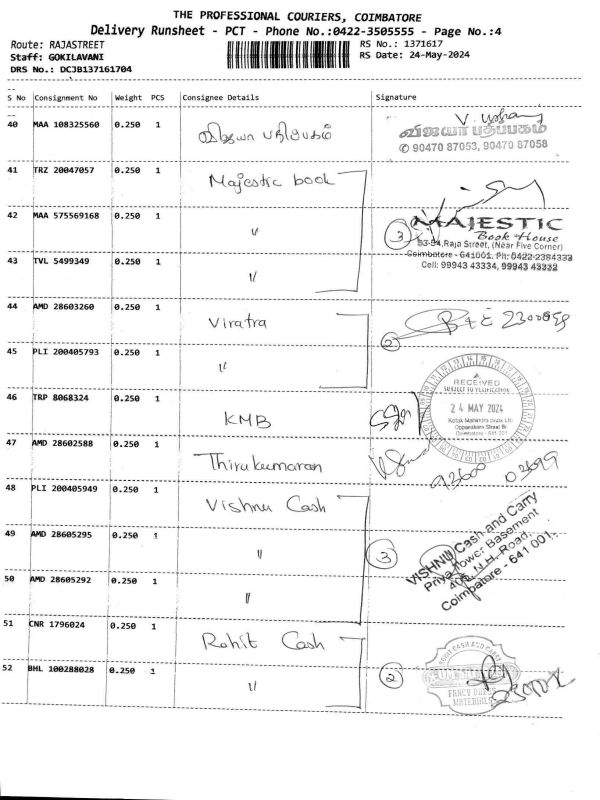 THE PROFESSIONAL COURIERS, COIMBATORE
Delivery Runsheet - PCT - Phone No.:0422-3505555 - Page No.:4
Route: RAJASTREET
Staff: GOKILAVANI
DRS No.: DCJB137161704
RS No.: 1371617
RS Date: 24-May-2024
S No Consignment No Weight PCS Consignee Details Signature
40 MAA 108325560 0.250 1 விஜயா பதிப்பகம்
V. Usha
விஜயா பதிப்பகம்
✆ 90470 87053, 90470 87058
41 TRZ 20047057 0.250 1 Majestic book
42 MAA 575569168 0.250 1 "
3
MAJESTIC
Book House
53-54,Raja Street, (Near Five Corner)
Coimbatore - 641001. Ph: 0422-2384333
Cell: 99943 43334, 99943 43332
43 TVL 5499349 0.250 1 "
44 AMD 28603260 0.250 1 Viratra
2
45 PLI 200405793 0.250 1 "
RECEIVED
SUBJECT TO VERIFICATION
24 MAY 2024
Kotak Mahindra Bank Ltd
Oppanakara Street Br
Coimbatore - 641 001
46 TRP 8068324 0.250 1 KMB
47 AMD 28602588 0.250 1 Thirukumaran
48 PLI 200405949 0.250 1 Vishnu Cash
49 AMD 28605295 0.250 1 "
3
VISHNU Cash and Carry
Priya Tower Basement
N.H. Road,
Coimbatore - 641 001.
50 AMD 28605292 0.250 1 "
51 CNR 1796024 0.250 1 Rohit Cash
52 BHL 100288028 0.250 1 "
2
FANCY DRESS
MATERIALS